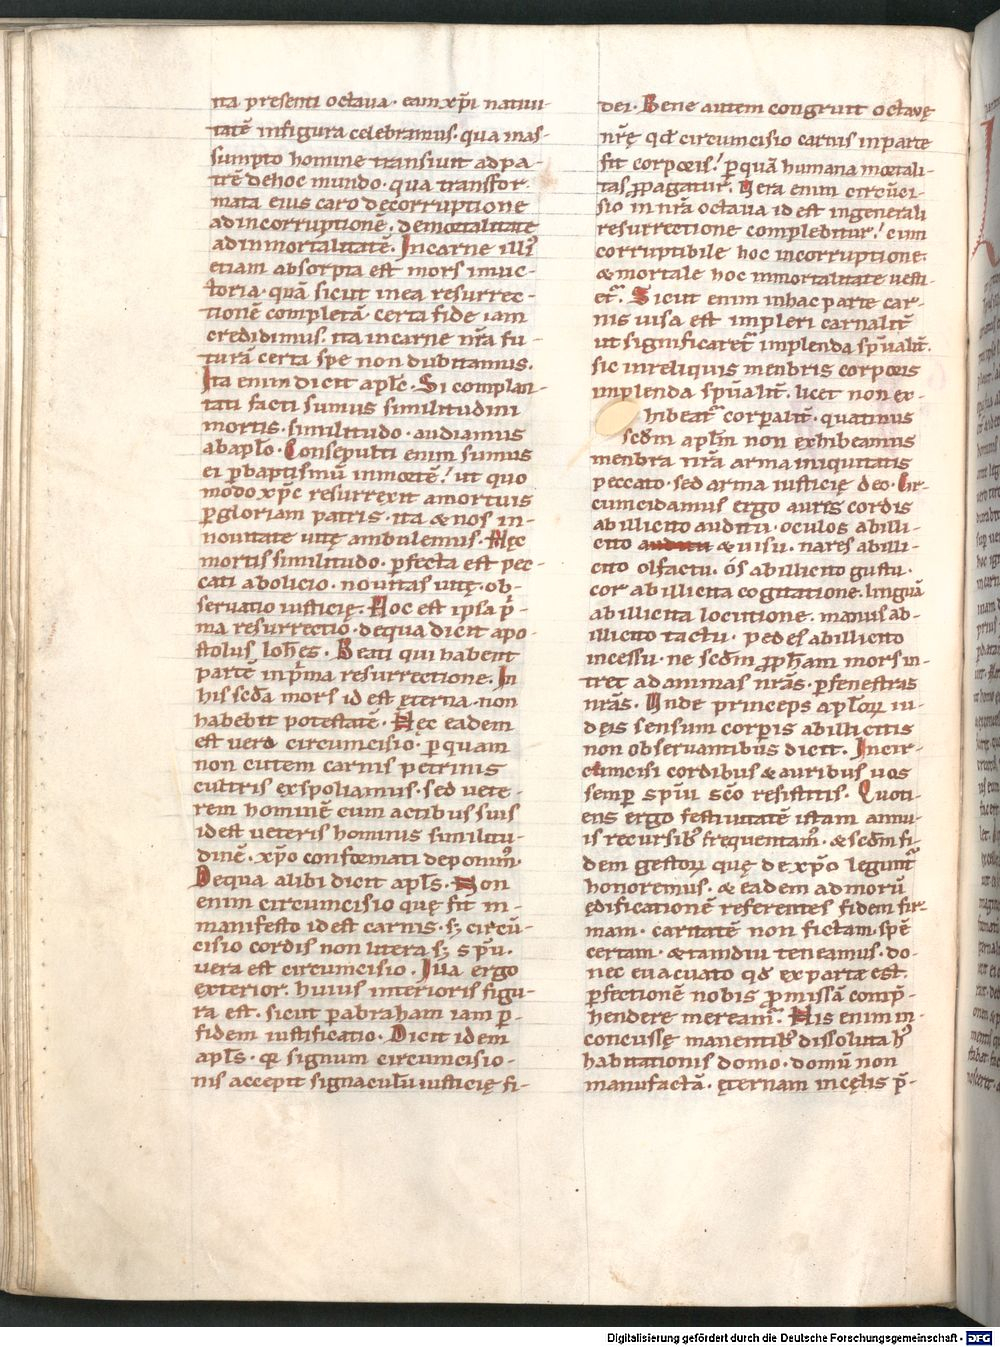 ita presenti octaua · eam xp̄i natiui-
tatē in figura celebramus · qua in as-
sumpto homine transiuit ad pa-
trē de hoc mundo · qua transfor-
mata eius caro de corruptione
ad incorruptionē · de mortalitate
ad inmortalitatē. In carne illi᷒
etiam absorpta est mors in uic-
toria · quā sicut in ea resurrec-
tionē completā · certa fide iam
credidimus! ita in carne nr̄a fu-
turā certa spe non dubitamus.
Ita enim dicit apl̄c. Si complan-
tati facti sumus similitudini
mortis · similitudo · audiamus
ab apl̄o. Consepulti enim sumus
ei p̱ baptismū in mortē! ut quo
modo xp̄c resurrexit a mortuis
p̱ gloriam patris · ita & nos in
nouitate uitę ambulemus. Hęc
mortis similitudo · p̱fecta est pec-
cati abolicio · nouitas uitę · ob-
seruatio iusticię. Hoc est ipsa p̄-
ma resurrectio · de qua dicit apo-
stolus Ioh̄es. Beati qui habent
partē in p̄ma resurrectione. In
his scd̄a mors id est ęterna · non
habebit potestatē. Hęc eadem
est uera circumcisio · p̱ quam
non cutem carnis petrinis
cultris exspoliamus · sed uete-
rem hominē cum actibus suis
id est ueteris hominis similitu-
dinē · xp̄o conformati deponim᷒.
De qua alibi dicit apl̄s. Non
enim circumcisio quę fit in
manifesto id est carnis · s; circū-
cisio cordis non litera s; sp̄u ·
uera est circumcisio. Ita ergo
exterior · huius interioris figu-
ra est · sicut p̱ abraham iam p̱
fidem iustificatio. Dicit idem
apl̄s · qđ signum circumcisio-
nis accepit signaculū iusticię fi-
dei. Bene autem congruit octauę
nr̄ę qđ circumcisio carnis in parte
fit corporis! p̱ quā humana mortali-
tas ꝓpagatur. Vera enim circūci-
sio in nr̄a octaua id est in generali
resurrectione complebitur! cum
corruptibile hoc incorruptione ·
& mortale hoc inmortalitate uesti-
et᷒. Sicut enim in hac parte car-
nis uisa est impleri carnalit̄
ut significaret᷒ implenda sp̄ualit̄ ·
sic in reliquis menbris corporis
implenda sp̄ualit̄ · licet non ex-
hibeat᷒ corp̱alit̄ · quatinus
scd̄m apl̄m non exhibeamus
menbra nr̄a arma iniquitatis
peccato · sed arma iusticię deo. Cir-
cumcidamus ergo aures cordis
ab illicito auditu · oculos ab illi-
cito auditu & uisu · nares ab illi-
cito olfactu · ōs ab illicito gustu ·
cor ab illicita cogitatione · linguā
ab illicita locutione · manus ab
illicito tactu · pedes ab illicito
incessu · ne scd̄m ꝓph̄am mors in-
tret ad animas nr̄as · p̱ fenestras
nr̄as. Unde princeps apl̄oꝝ iu-
deis sensum corp̱is ab illicitis
non obseruantibus dicit. Incir-
cumcisi cordibus & auribus uos
semp̱ sp̄ui sc̄o resistitis. Quoti-
ens ergo festiuitatē istam annu-
is recursib᷒ frequentam᷒ · & scd̄m fi-
dem gestoꝝ quę de xp̄o legunt᷒
honoremus · & eadem ad morū
ędificationē referentes fidem fir-
mam · caritatē non fictam · spē
certam · & tamdiu teneamus · do-
nec euacuato qđ ex parte est ·
p̱fectionē nobis ꝓmissā comp̄-
hendere mereamᷓ. His enim in-
concussę manentib᷒ dissoluta h᷒
habitationis domo · domū non
manufactā · ęternam in cęlis p̄-
Digitalisierung gefördert durch die Deutsche Forschungsgemeinschaft - DFG